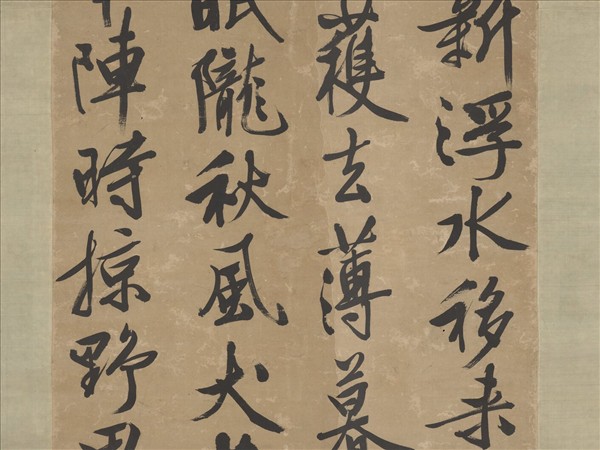 新浮水移来
穫去薄暮
眠隴秋風犬
陣時掠野